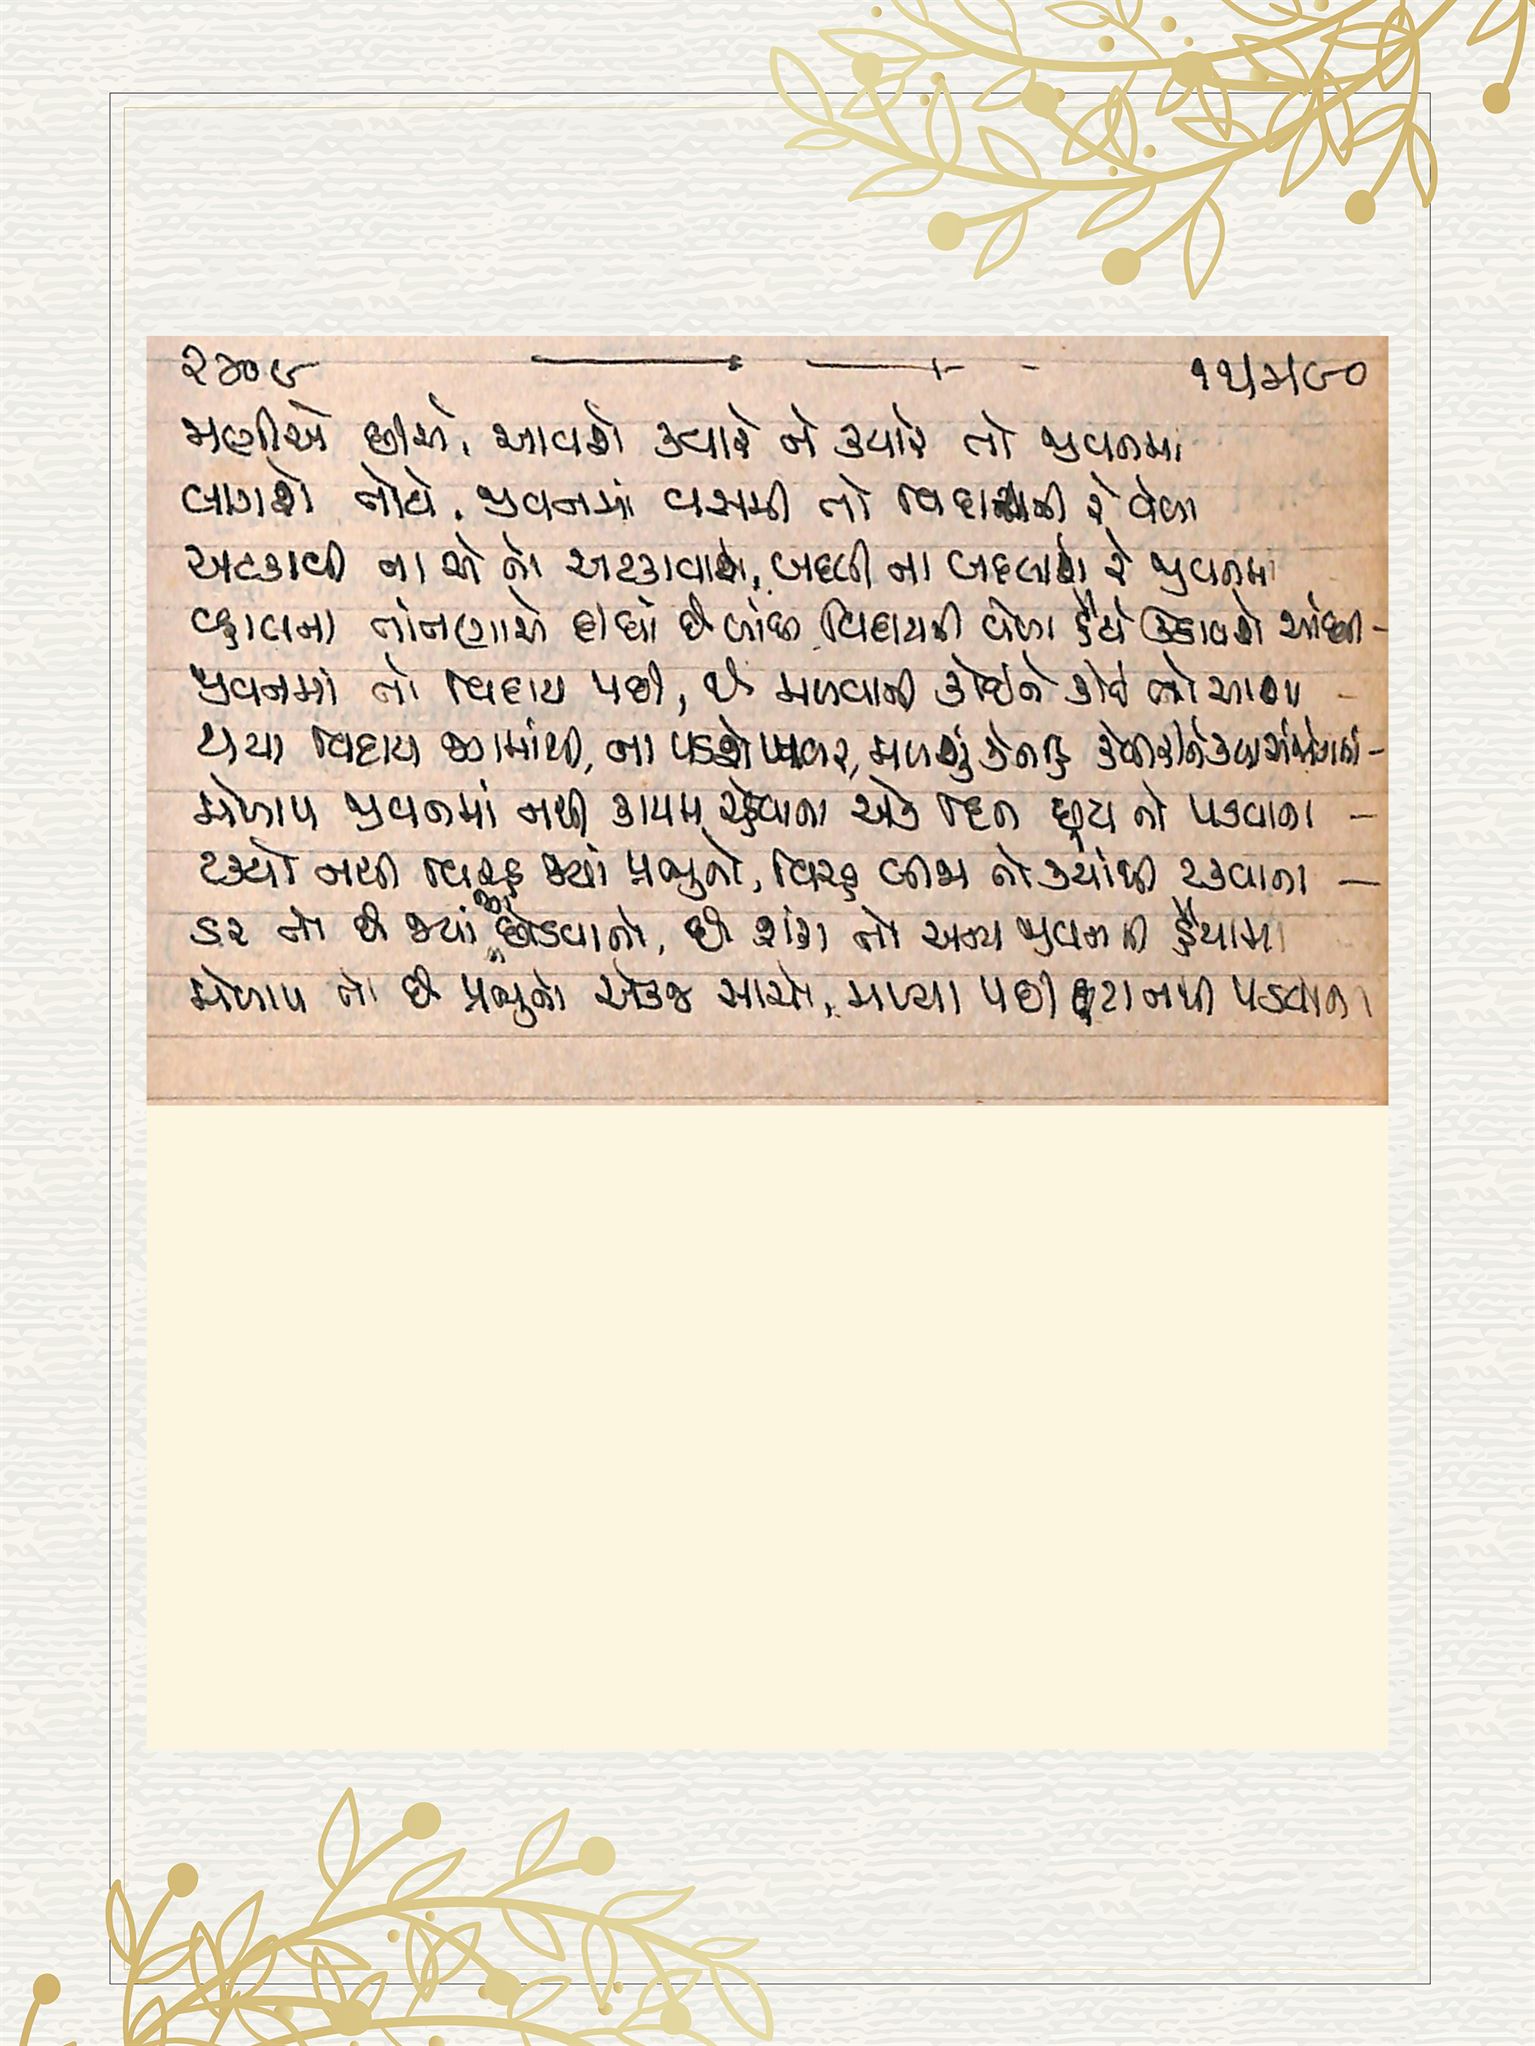 ૨૪૦૯ ૧૫મ૯૦
મળીએ છીએ, આવશે ક્યારે ને ક્યારે તો જીવનમાં
લાગશે તોયે, જીવનમાં વસમી તો વિદાયની રે વેળા
અટકાવી ના એ તો અટકાવાશે, બદલી ના બદલાશે રે જીવનમાં
વ્હાલના તાંતણાએ દીધાં છે બાંધી વિદાયની વેળા હૈયે અટકાવશે આંધી -
જીવનમાં તો વિદાય પછી, છે મળવાની કોઈને કોઈ તો આશા -
થયા વિદાય જગમાંથી, ના પડશે ખબર, મળશું કે નહિ
મેળાપ જીવનમાં નથી કાયમ રહેવાના એક દિન છૂટા તો પડવાના -
ટક્યો નથી વિરહ જ્યાં પ્રભુનો, વિરહ બીજા તો ક્યાંથી ટકવાના -
ડર તો છે જ્યાં જગ છોડવાનો, છે શંકા તો અન્ય જીવનની હૈયામાં
મેળાપ તો છે પ્રભુનો એકજ સાચો, મળ્યા પછી છૂટા નથી પડવાના